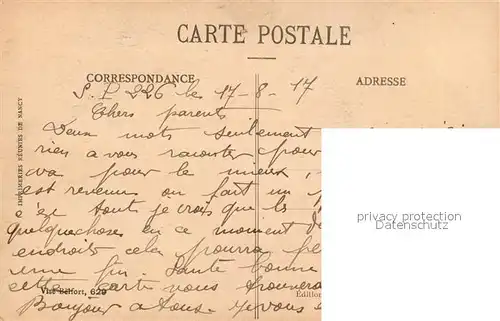 CARTE POSTALE
CORRESPONDANCE
ADRESSE
S. P. 226 le 17-8-17
Chers parents
Deux mots seulement
rien a vous raconter pour
va pour le mieux,
est revenu on fait un
c'est tout je crois que
quelquechose en ce moment
endroits cela pourra
une fin. Santé bonne
cette carte vous trouvera
Bonjour a tous. Je vous
Visé Belfort, 629
Édition
IMPRIMERIES RÉUNIES DE NANCY
privacy protection
Datenschutz